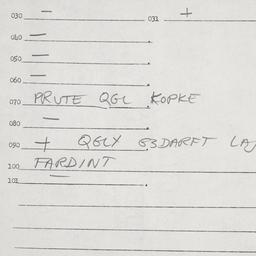 030 — 031 +
040 —
050 —
060 —
070 PRUTE QGL KOPKE
080 —
090 + QGLY G3DARFT LAJ
100 FARDINT
101 —